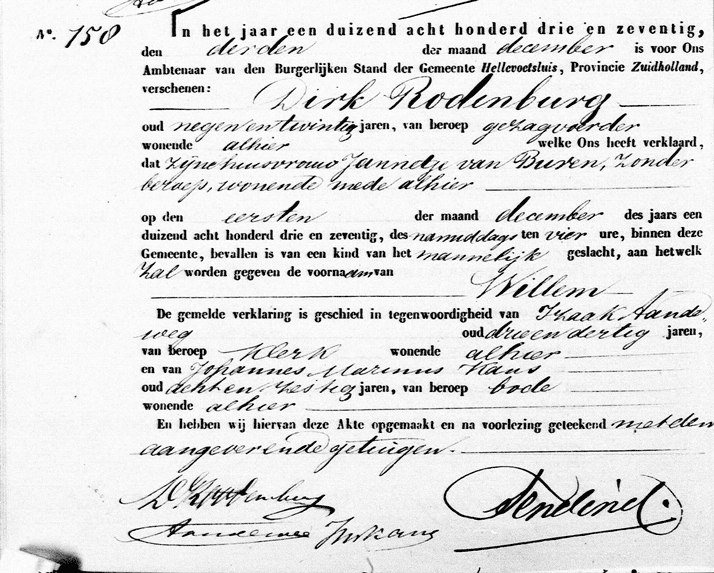 No. 158
In het jaar een duizend acht honderd drie en zeventig,
den derden der maand december is voor Ons
Ambtenaar van den Burgerlijken Stand der Gemeente Hellevoetsluis, Provincie Zuidholland,
verschenen:
Dirk Rodenburg
oud negen en twintig jaren, van beroep gezagvoerder
wonende alhier welke Ons heeft verklaard,
dat zijne huisvrouw Jannetje van Buren, zonder
beroep, wonende mede alhier
op den eersten der maand december des jaars een
duizend acht honderd drie en zeventig, des namiddags ten vier ure, binnen deze
Gemeente, bevallen is van een kind van het mannelijk geslacht, aan hetwelk
zal worden gegeven de voornaam van
Willem
De gemelde verklaring is geschied in tegenwoordigheid van Izaak Aande-
weg oud drie en dertig jaren,
van beroep klerk wonende alhier
en van Johannes Marinus Kaus
oud acht en zestig jaren, van beroep bode
wonende alhier
En hebben wij hiervan deze Akte opgemaakt en na voorlezing geteekend met den
aangever en de getuigen.
D Rodenburg
Aandeweg JMKaus